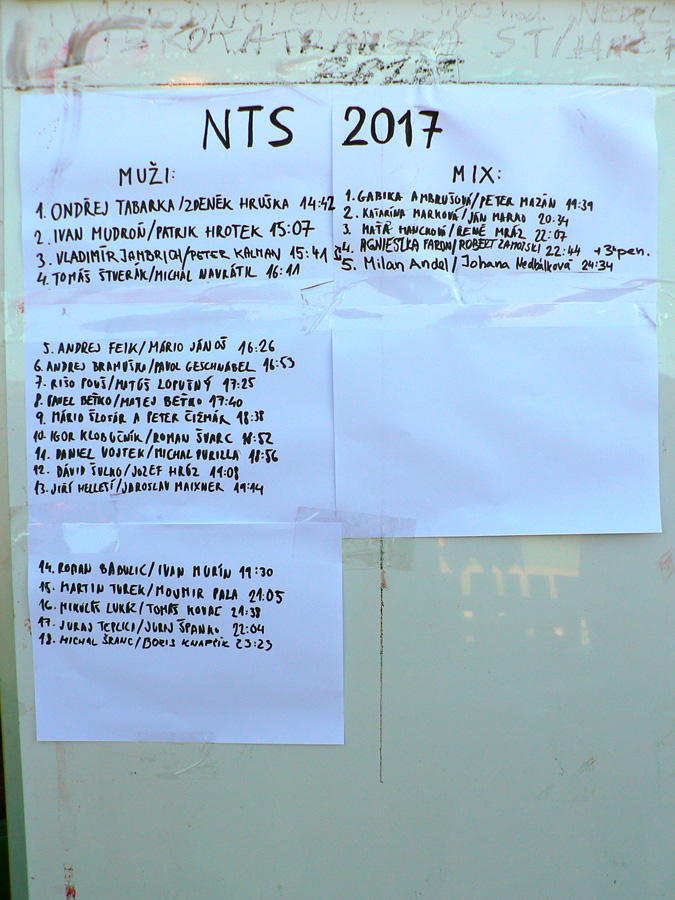 NTS 2017
MUŽI:
1. ONDŘEJ TABARKA/ZDENĚK HRUŠKA 14:42
2. IVAN MUDROŇ/PATRIK HROTEK 15:07
3. VLADIMÍR JAMBRICH/PETER KALMAN 15:41
4. TOMÁŠ ŠTVERÁK/MICHAL NAVRÁTIL 16:11
5. ANDREJ FEIK/MÁRIO JÁNOŠ 16:26
6. ANDREJ /PAVOL GESCHWÄBEL 16:53
7. RIŠO POUŠ/MATÚŠ LOPUŠNÝ 17:25
8. PAVEL BEŤKO/MATEJ BEŤKO 17:40
9. MÁRIO ŠLOSÁR A PETER ČIŽMÁR 18:38
10. IGOR KLOBUČNÍK/ROMAN ŠVARC 18:52
11. DANIEL VOJTEK/MICHAL PURILLA 18:56
12. DÁVID ŠULKO/JOZEF HRŮZ 19:08
13. JIŘÍ /JAROSLAV MAIXNER 19:14
14. ROMAN BABULIC/IVAN MURÍN 19:30
15. MARTIN TUREK/MOJMIR PALA 21:05
16. MIKULÁŠ LUKÁČ/TOMÁŠ KOVAC 21:38
17. JURAJ TEPLICI/JURAJ ŠPANKO 22:04
18. MICHAL ŠRANC/BORIS KNAPČÍK 23:23
MIX:
1. GABIKA AMBRUŠOVÁ/PETER MAZÁN 19:39
2. KATARÍNA MARKOVÁ/JÁN MARKO 20:34
3. HANCKOVÁ/RENÉ MRÁZ 22:07
4. AGNIESZKA /ROBERT ZAMOJSKI 22:44 +3h pen.
5. Milan Andel/Johana Nedbálková 24:34